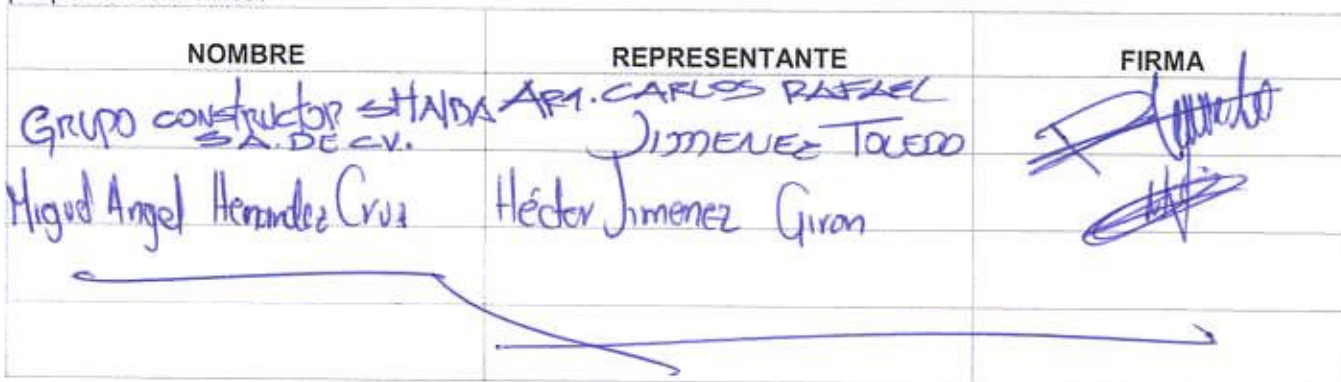 NOMBRE REPRESENTANTE FIRMA
GRUPO CONSTRUCTOR SHNDA ARQ. CARLOS RAFAEL
S.A. DE C.V. JIMENEZ TOLEDO
Miguel Angel Hernandez Cruz Héctor Jimenez Giron